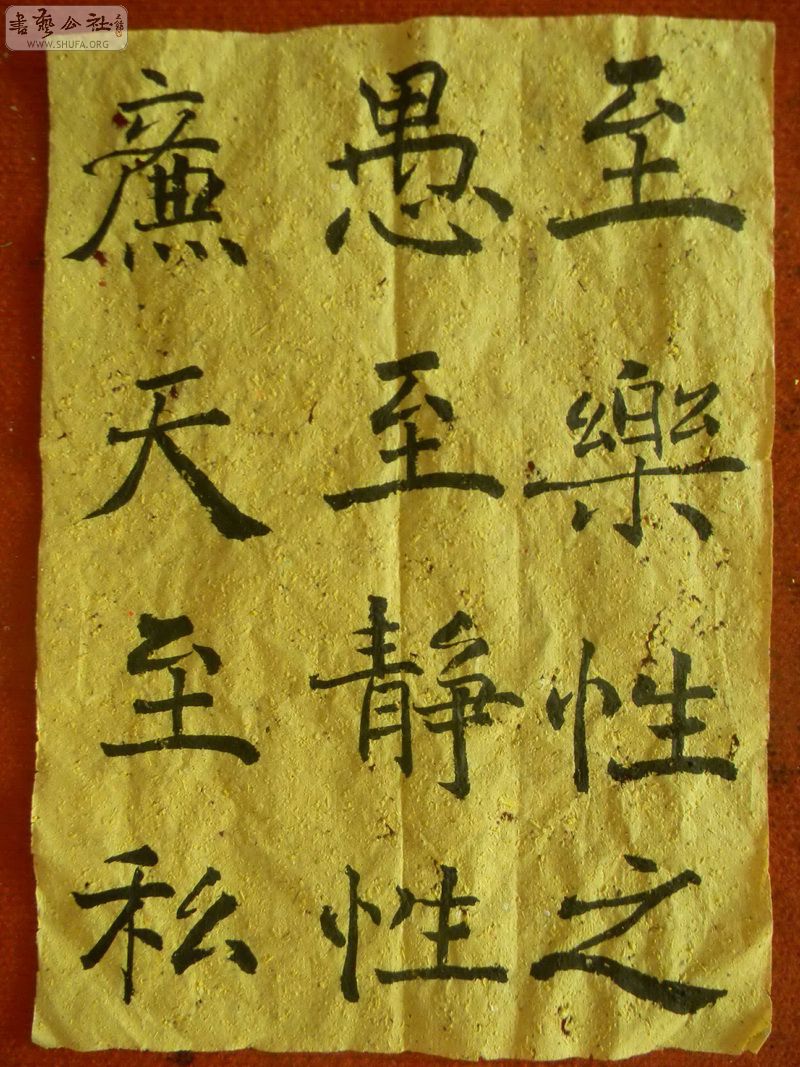 書藝公社
WWW.SHUFA.ORG
至樂性之
愚至靜性
廉天至私